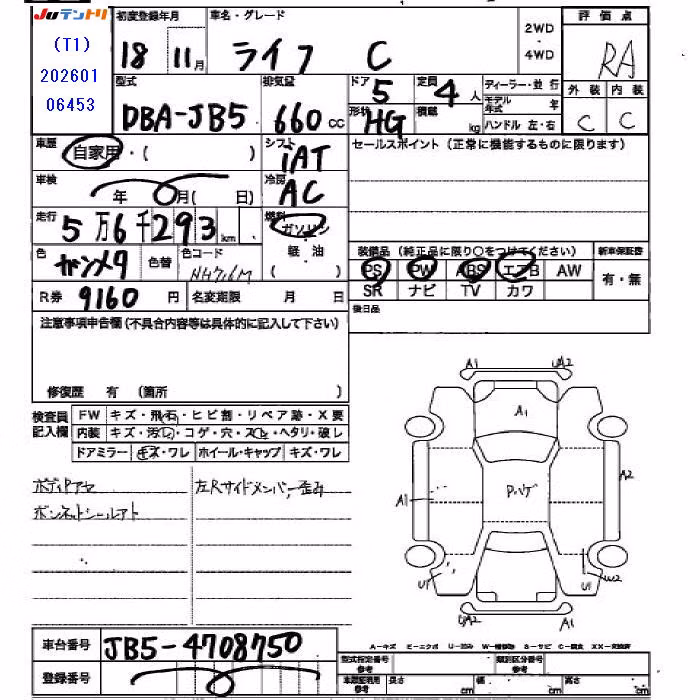 JUテントリ
(T1)
202601
06453
初度登録年月
18 11月
車名・グレード
ライフ C
2WD
・
4WD
評価点
RA
型式
DBA-JB5
排気量
660 CC
ドア
5
形状
HG
定員
4 人
積載
kg
ディーラー・並行
モデル年式 年
ハンドル 左・右
外装 内装
C C
車歴
自家用・( )
シフト
IAT
セールスポイント (正常に機能するものに限ります)
車検
年 月( 日)
冷房
AC
走行
5万6千293 km
燃料
ガソリン
軽・油
( )
色
ガンメタ
色替
色コード
NH716M
装備品 (純正品に限り○をつけてください)
新車保証書
PS PW ABS エアB AW
有・無
SR ナビ TV カワ
R券 9160 円
名変期限 月 日
後日品
注意事項申告欄(不具合内容等は具体的に記入して下さい)
修復歴 有 (箇所 )
検査員記入欄
FW キズ・飛石・ヒビ割・リペア跡・X要
内装 キズ・汚レ・コゲ・穴・スレ・ヘタリ・破レ
ドアミラー キズ・ワレ ホイール・キャップ キズ・ワレ
ボディアセ
ボンネットシールアト
左Rサイドメンバー歪み
A1 UA2
A1
P.ハゲ
A1 A2
U1 U1 W2
UA2 A1
車台番号 JB5-4708750
登録番号
A-キズ E-エクボ U-凹み W-補修跡 S-サビ C-腐食 XX-交換済
型式指定番号
参考
類別区分番号
参考
車庫証明用
参考
長さ 幅 高さ